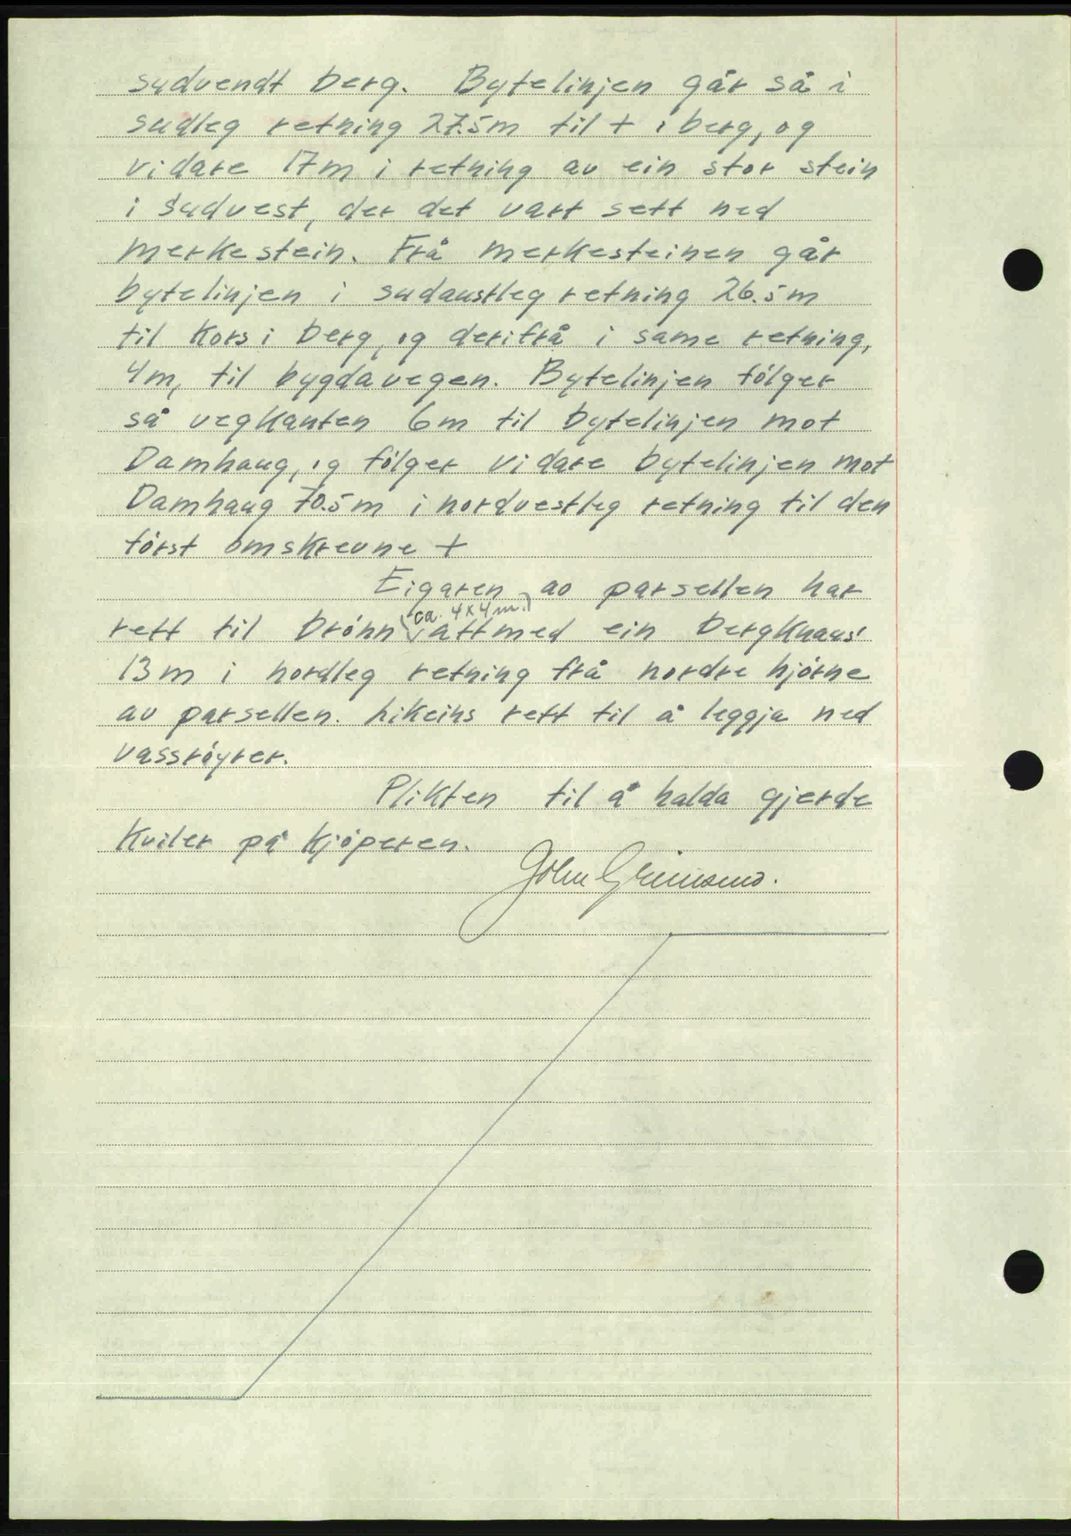 sudvendt berg. Bytelinjen går så i
sudleg retning 27.5m til + i berg, og
vidare 17m i retning av ein stor stein
i sudvest, der det vart sett ned
merkestein. Frå merkesteinen går
bytelinjen i sudaustleg retning 26.5m
til kors i berg, og derifrå i same retning,
4m, til bygdavegen. Bytelinjen følger
så vegkanten 6m til bytelinjen mot
Damhaug, og følger vidare bytelinjen mot
Damhaug 70.5m i nordvestleg retning til den
først omskrevne +
Eigaren av parsellen har
rett til brønn (ca. 4x4m.) attmed ein bergknaus
13m i nordleg retning frå nordre hjørne
av parsellen. Likeins rett til å leggja ned
vassrøyrer.
Plikten til å halda gjerde
kviler på kjøperen.
John Grimsmo.